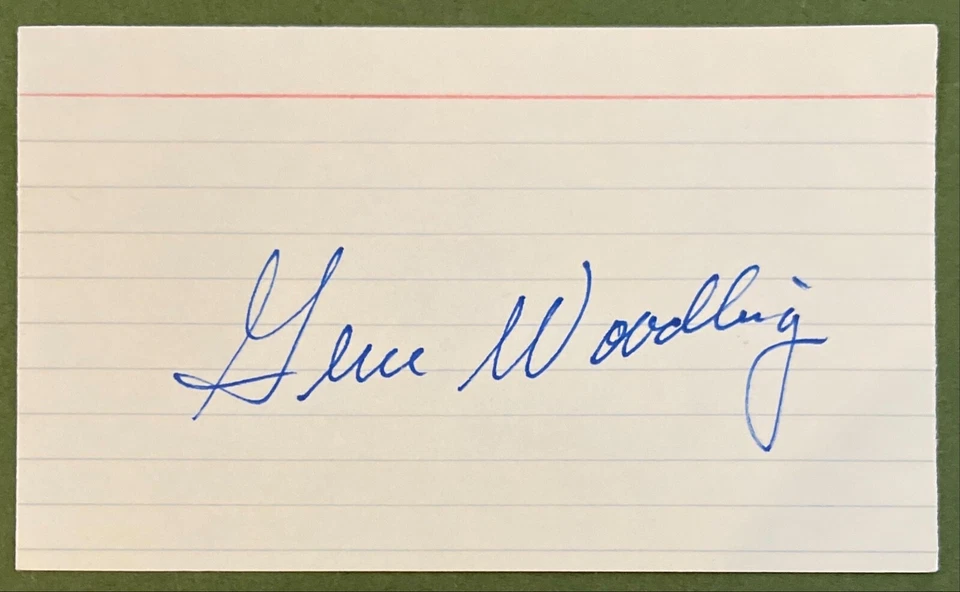 Gene Woodling